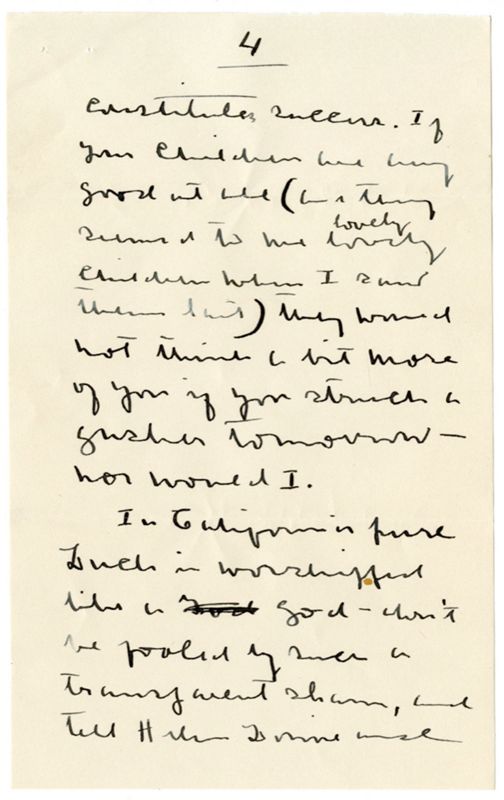 4
constitutes success. If
your children are any
good at all (and they
lovely
seemed to me lovely
children when I saw
them last) they would
not think a bit more
of you if you struck a
gusher tomorrow —
nor would I.
In California pure
Luck is worshipped
like a god – don't
be fooled by such a
transparent sham, and
tell Helen